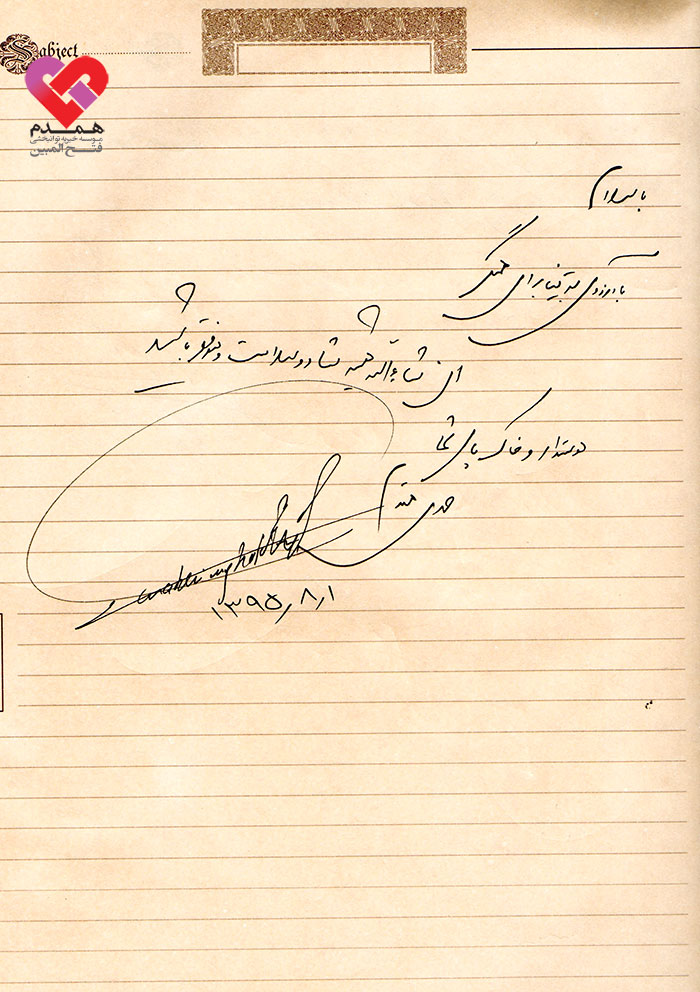 Subject
همدم
موسسه خیریه توانبخشی
فتح المبین
با سلام
با آرزوی بهترینها برای همگی
ان شاءالله همیشه شاد و سلامت و موفق باشید
دوستدار و خاک پای شما
مهدی مقدم
۱۳۹۵/۸/۱